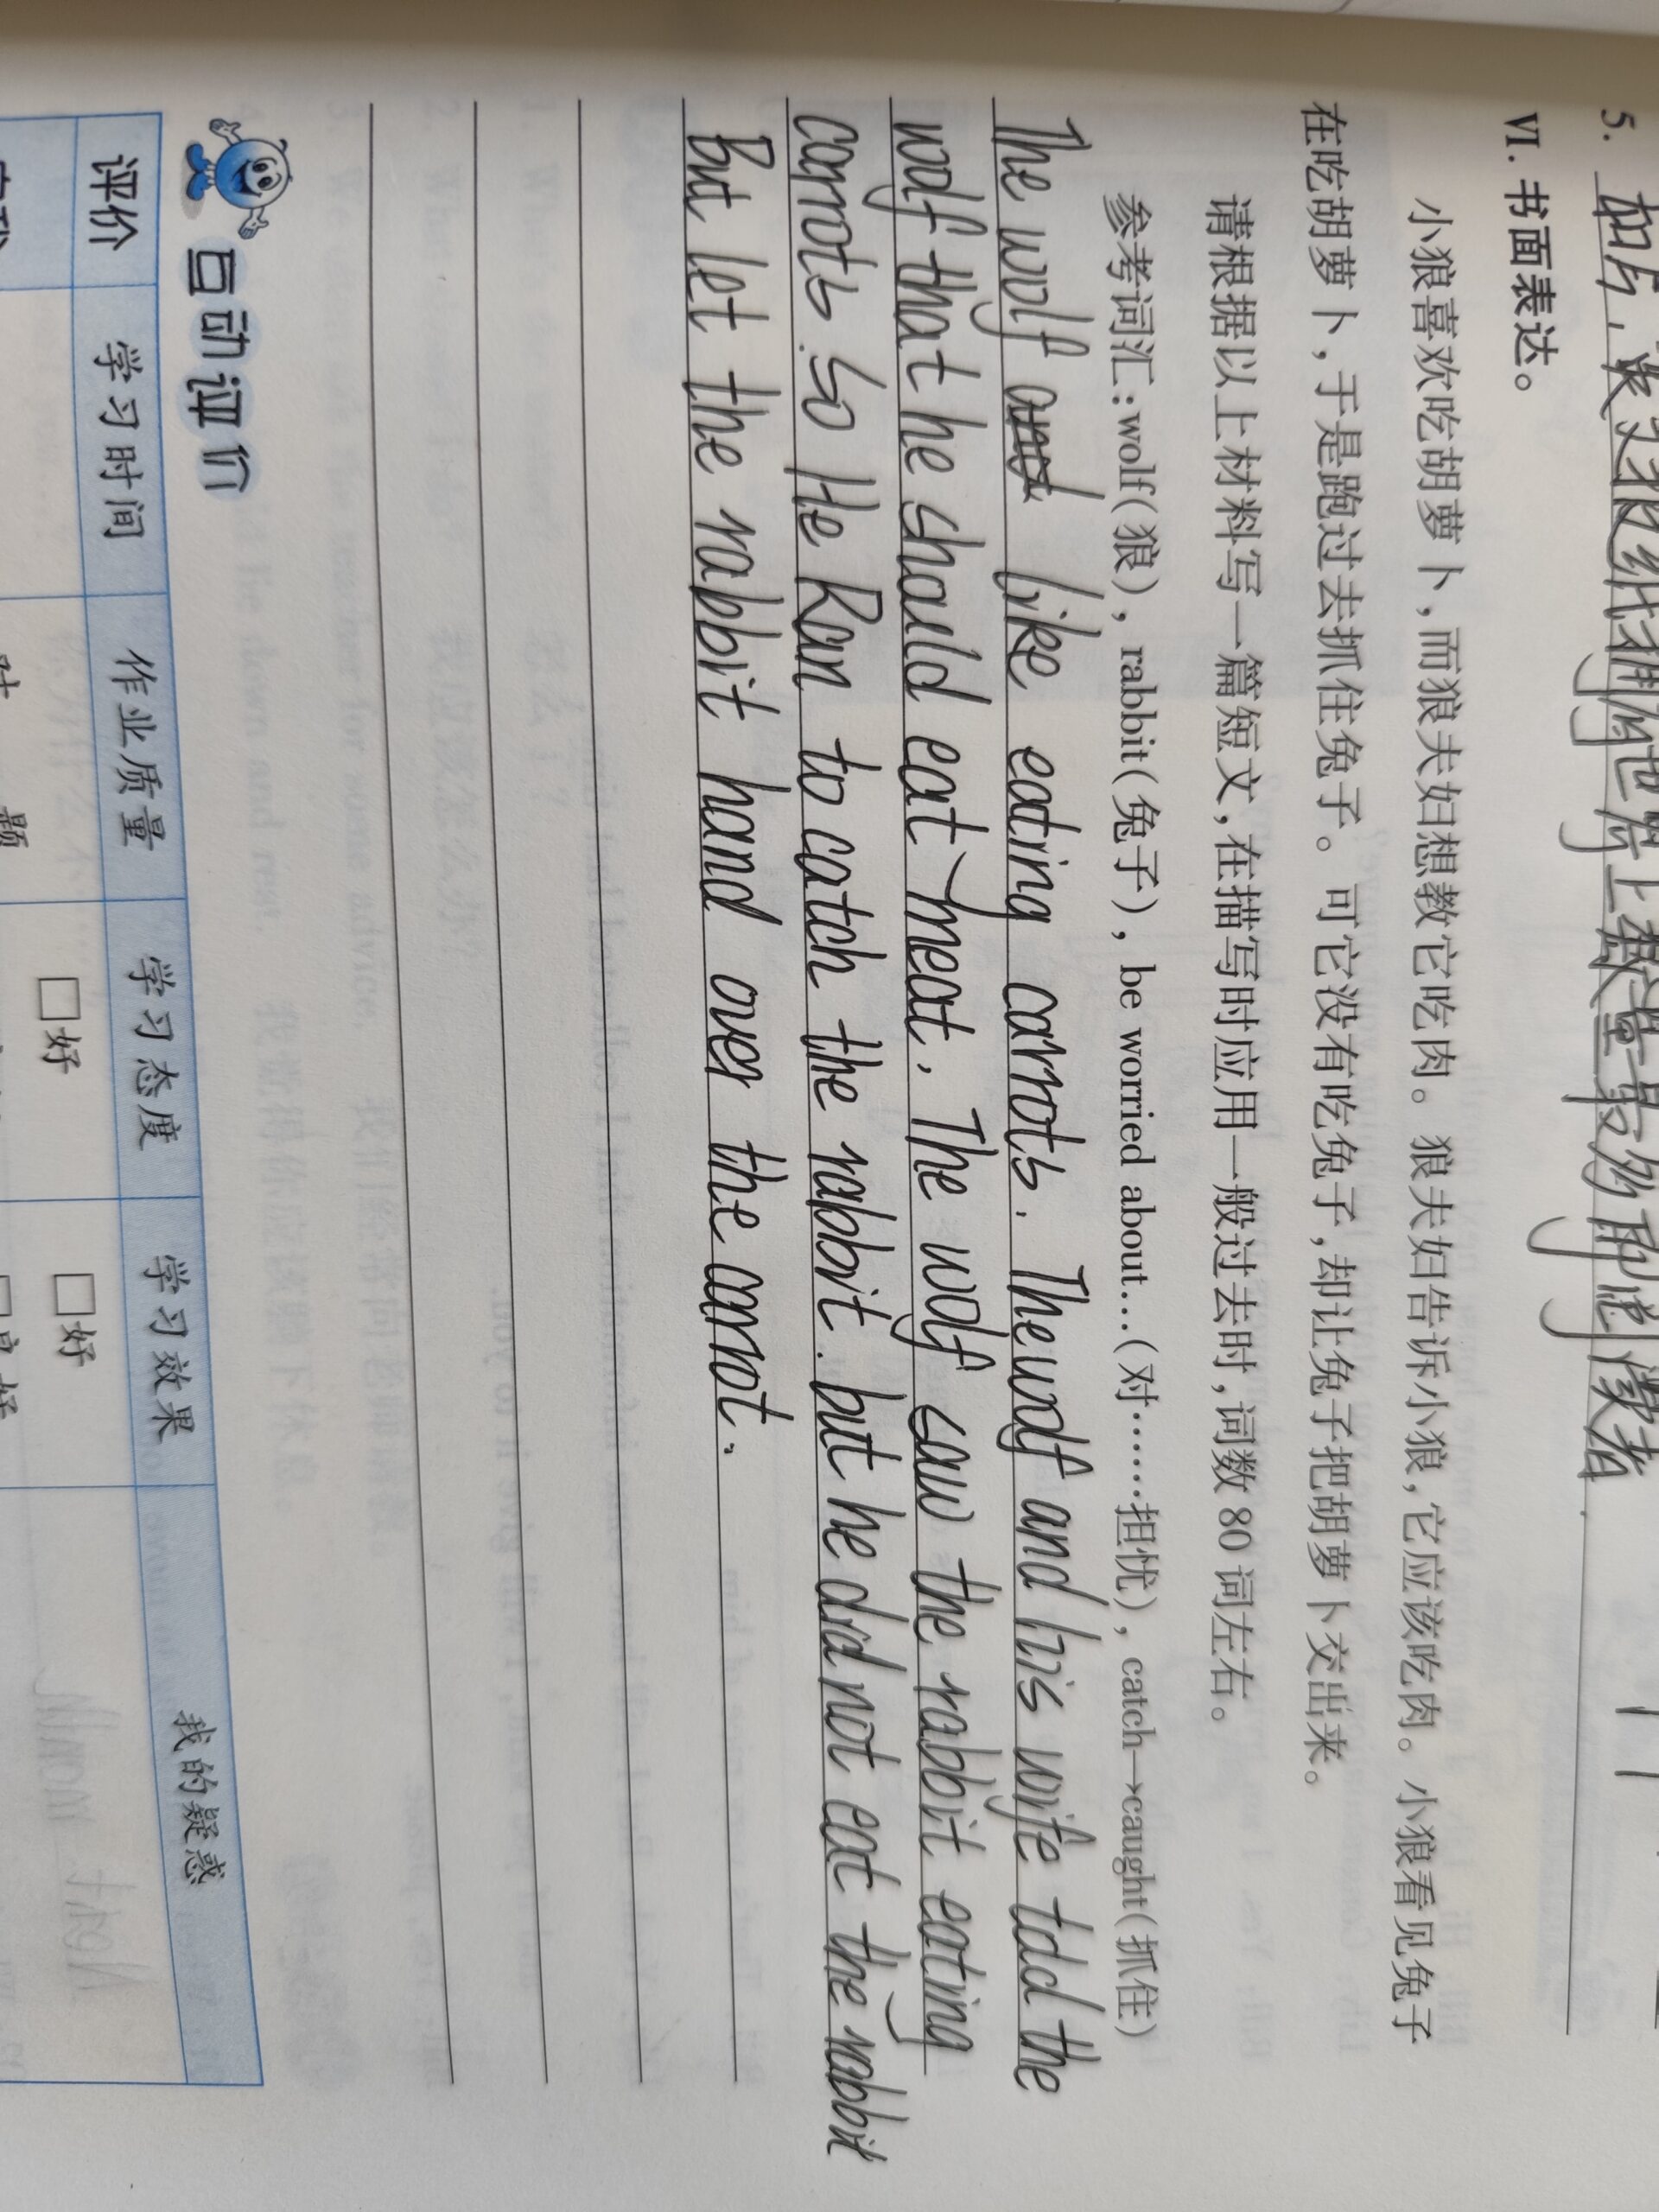 5. 如后,灰叉狼纸獬
VI. 书面表达。
小狼喜欢吃胡萝卜,而狼夫妇想教它吃肉。狼夫妇告诉小狼,它应该吃肉。小狼看见兔子
在吃胡萝卜,于是跑过去抓住兔子。可它没有吃兔子,却让兔子把胡萝卜交出来。
请根据以上材料写一篇短文,在描写时应用一般过去时,词数 80 词左右。
参考词汇:wolf(狼), rabbit(兔子), be worried about…(对……担忧), catch→caught(抓住)
The wolf and like eating carrots. The wolf and his wife told the
wolf that he should eat meat. The wolf saw the rabbit eating
carrots. So He Ran to catch the rabbit. but he did not eat the rabbit
But let the rabbit hand over the carrot.
互动评价
评价 学习时间 作业质量 学习态度 学习效果 我的疑惑
□好 □好
题